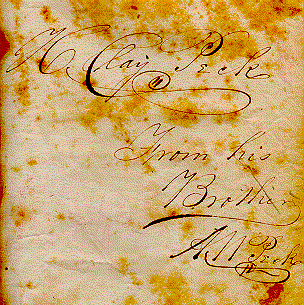 H. Clay Peck
From his
Brother
A. W. Peck